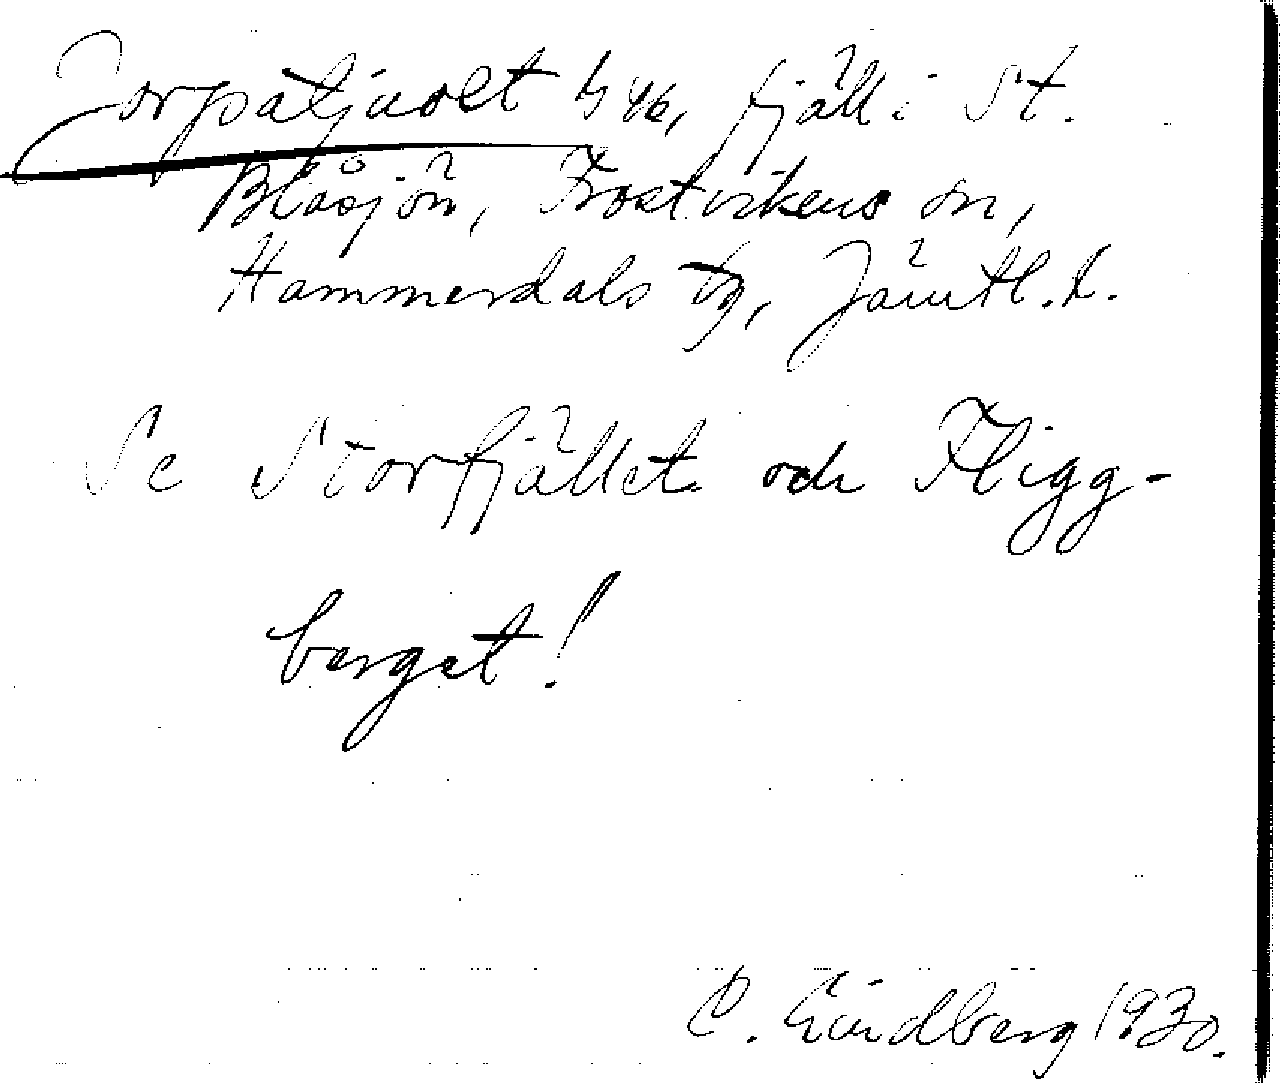 Jorpatjuolt h 46, fjäll i St.
Blåsjön, Frostvikens sn,
Hammerdals tg, Jämtl. l.
Se Storfjället och Fligg-
berget!
C. Lindberg 1930.